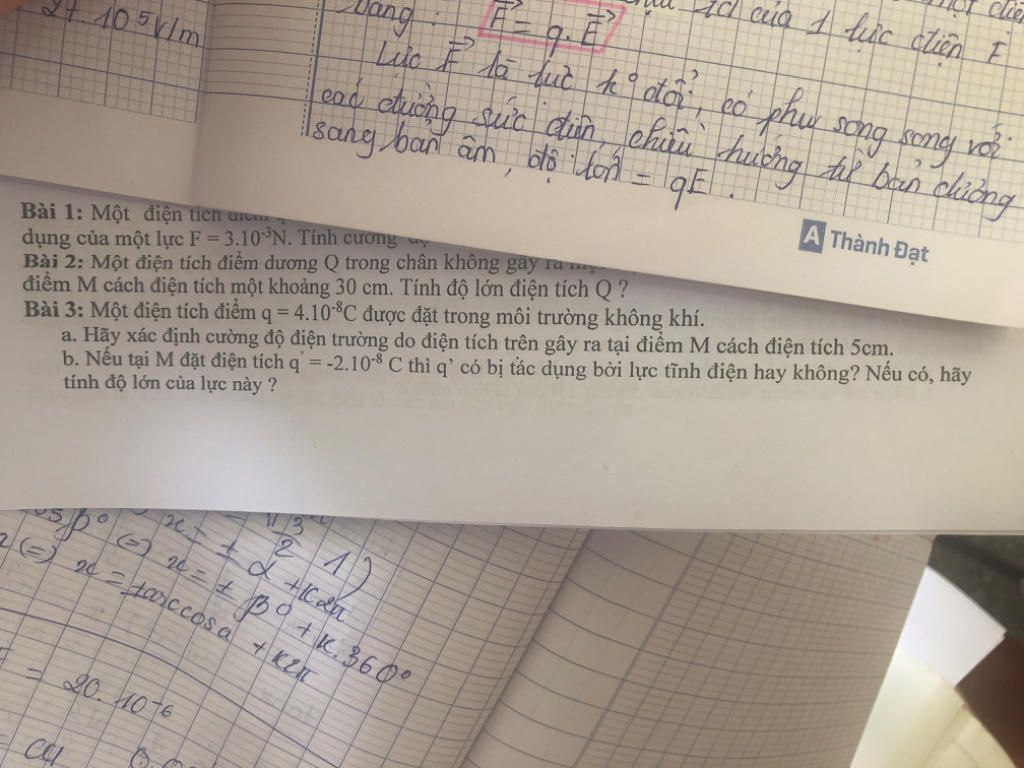 27.10⁵ V/m
bằng: F⃗ = q.E⃗
của 1 lực điện F
Lực F⃗ là lực kº đổi, có phư song song với
các đường sức điện, chiều hướng từ bản dương
sang bản âm, độ lớn = qE.
A Thành Đạt
Bài 1: Một điện tích điểm
dụng của một lực F = 3.10⁻³N. Tính cường
Bài 2: Một điện tích điểm dương Q trong chân không gây ra
điểm M cách điện tích một khoảng 30 cm. Tính độ lớn điện tích Q ?
Bài 3: Một điện tích điểm q = 4.10⁻⁸C được đặt trong môi trường không khí.
a. Hãy xác định cường độ điện trường do điện tích trên gây ra tại điểm M cách điện tích 5cm.
b. Nếu tại M đặt điện tích q' = -2.10⁻⁸ C thì q' có bị tác dụng bởi lực tĩnh điện hay không? Nếu có, hãy
tính độ lớn của lực này ?
1)
x = ± α + k2π
βº (=) x = ± βº + k.360º
(=) x = ±arccosa + k2π
= 20.10⁻⁶